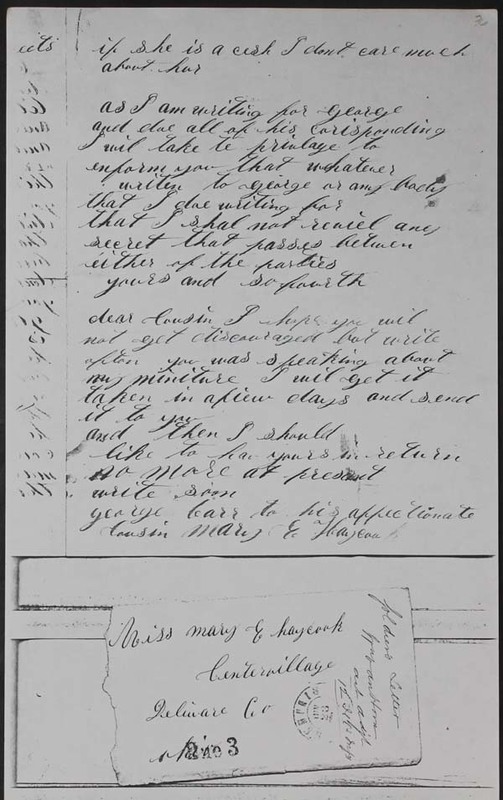 2
if she is a cesh I dont care much
about har
as I am writing for george
and doe all of his corisponding
I wil take te privlage to
enform you that whatever
writen to george or any body
that I doe writing for
that I shal not reviel any
secret that passes betwen
either of the parties
yours and so fourth
dear Cousin I hope you wil
not get discouraged but write
often you was speaking about
my miniture I wil get it
taken in afiew days and send
it to you
and then I should
like to hav yours in return
no more at present
write soon
george Carr to his affectionate
Cousin Mary E Haycook
Miss Mary E haycook
Centervillage
Deliware Co
Ohio
3
Soldiers Letter